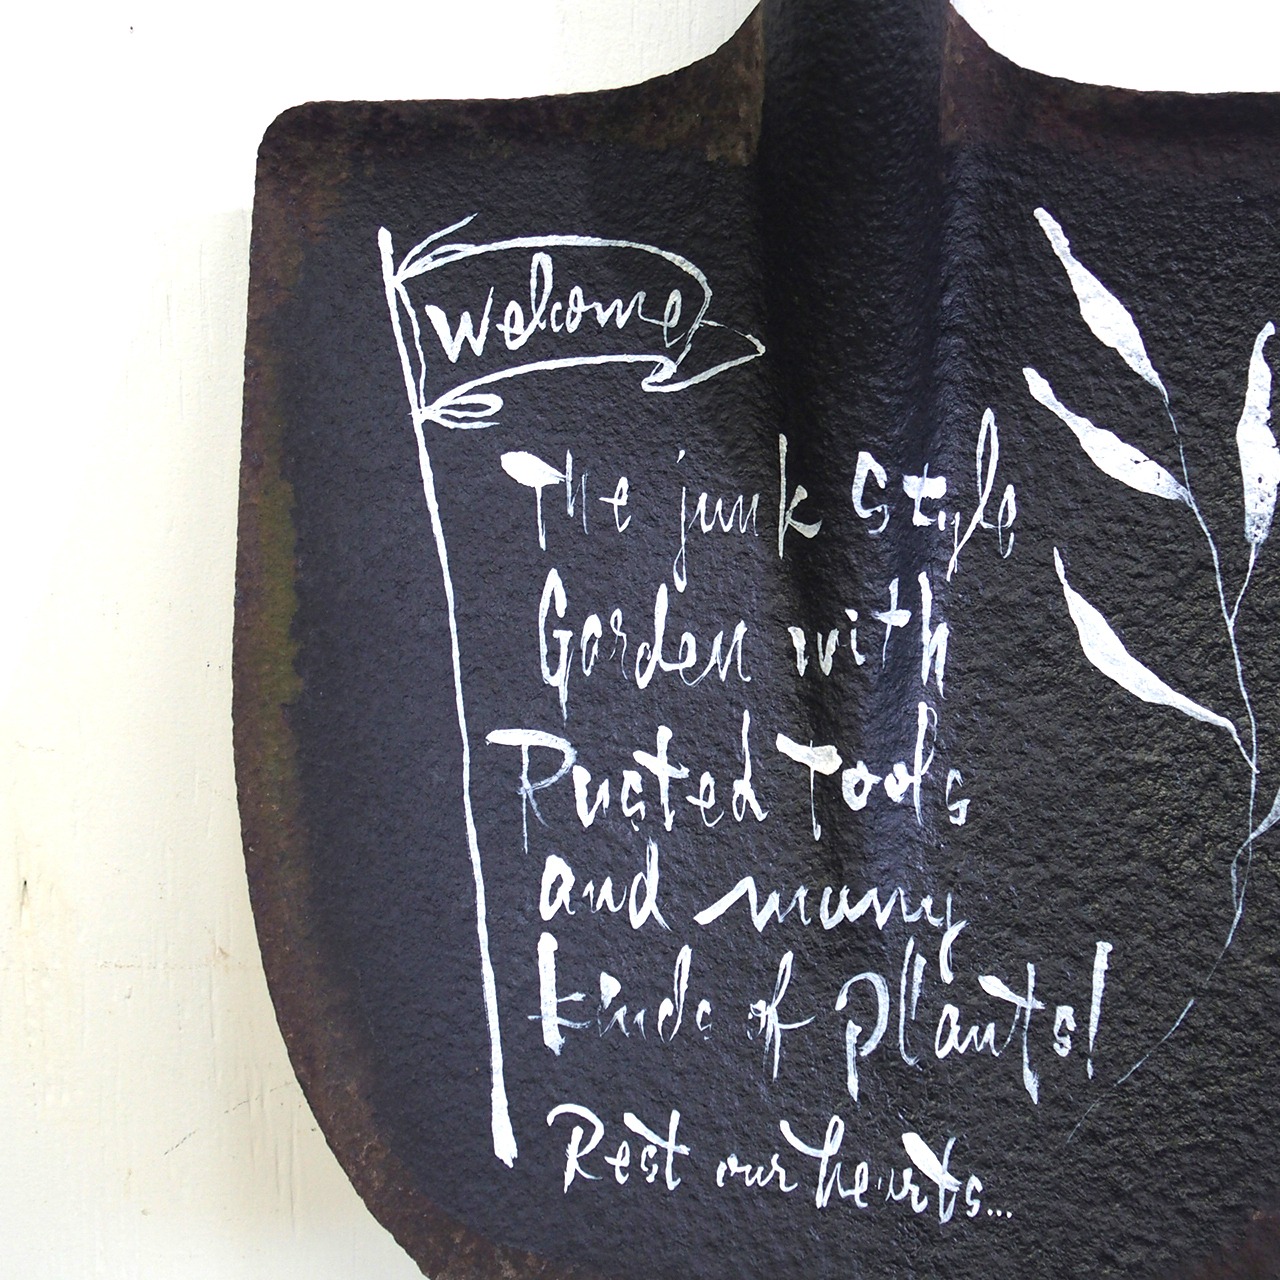 welcome
The junk Style
Garden with
Rusted Tools
and many
kinds of plants!
Rest our hearts...